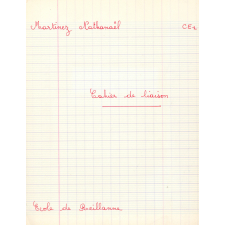 Martinez Nathanaël CE2
Cahier de liaison
Ecole de Reillanne